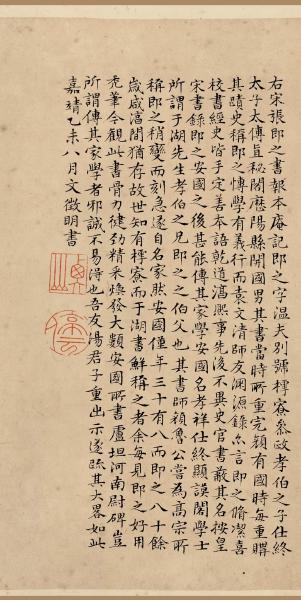 右宋張即之書報本庵記即之字溫夫別號樗寮參政孝伯之子仕終
太子太傅直秘閣歷陽縣開國男其書當時所重完顏有國時每重購
其蹟史稱即之博學有義行而袁文清師友淵源錄亦言即之脩潔喜
校書經史皆手定善本語乾道淳熙事先後不異史官書蓺其名按皇
宋書錄即之安國之後甚能傳其家學安國名孝祥仕終顯謨閣學士
所謂于湖先生孝伯之兄即之之伯父也其書師顏魯公嘗為高宗所
稱即之稍變而刻急遂自名家然安國僅年三十有八而即之八十餘
歲咸淳間猶存故世知有樗寮而于湖書鮮稱之者余每見即之好用
禿筆今觀此書骨力健勁精采煥發大類安國所書盧坦河南尉碑豈
所謂傳其家學者邪誠不易得也吾友湯君子重出示遂疏其大略如此
嘉靖乙未八月文徵明書